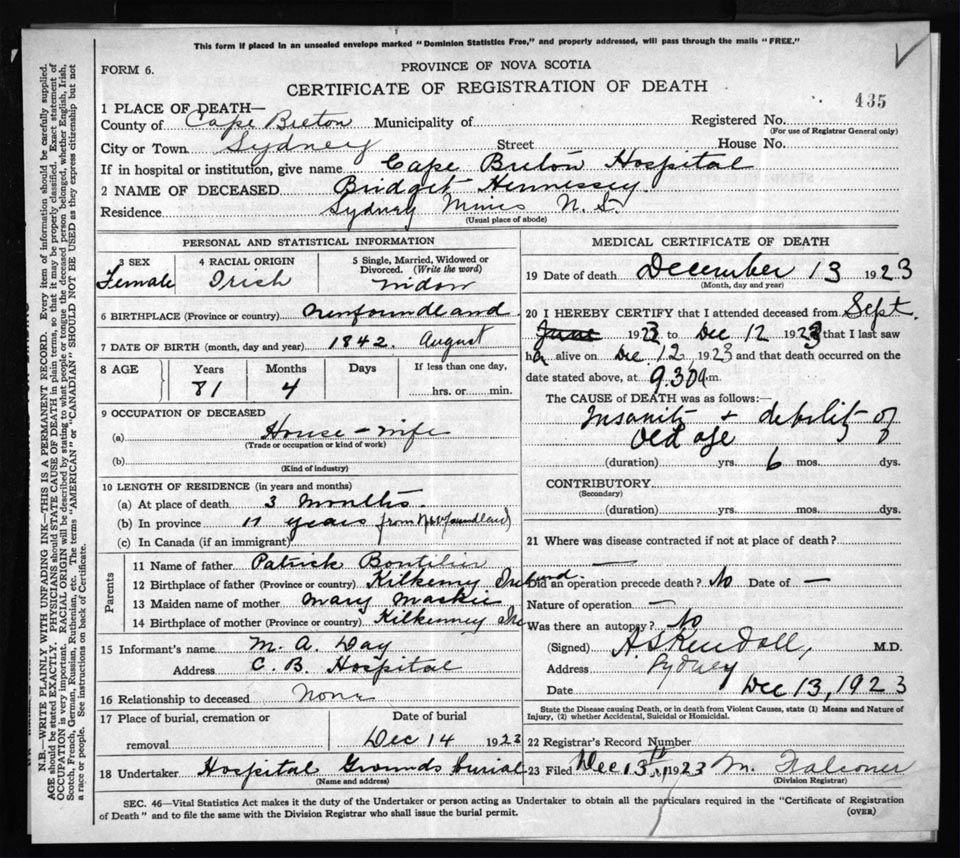 This form if placed in an unsealed envelope marked "Dominion Statistics Free," and properly addressed, will pass through the mails "FREE."
FORM 6.
PROVINCE OF NOVA SCOTIA
CERTIFICATE OF REGISTRATION OF DEATH
435
1 PLACE OF DEATH—
County of Cape Breton Municipality of Registered No.
(For use of Registrar General only)
City or Town Sydney Street House No.
If in hospital or institution, give name Cape Breton Hospital
2 NAME OF DECEASED Bridget Hennessey.
Residence Sydney Mines N. S.
(Usual place of abode)
PERSONAL AND STATISTICAL INFORMATION
3 SEX Female
4 RACIAL ORIGIN Irish
5 Single, Married, Widowed or Divorced. (Write the word) widow
6 BIRTHPLACE (Province or country) Newfoundland
7 DATE OF BIRTH (month, day and year) 1842. August
8 AGE Years Months Days If less than one day,
81 4 hrs. or min.
9 OCCUPATION OF DECEASED
(a) House-wife
(Trade or occupation or kind of work)
(b)
(Kind of industry)
10 LENGTH OF RESIDENCE (in years and months)
(a) At place of death 3 months.
(b) In province 11 years from Newfoundland
(c) In Canada (if an immigrant)
Parents
11 Name of father Patrick
12 Birthplace of father (Province or country) Kilkenny Ireland.
13 Maiden name of mother Mary Mackie
14 Birthplace of mother (Province or country) Kilkenny Ire
15 Informant's name M. A. Day
Address C. B. Hospital
16 Relationship to deceased None
17 Place of burial, cremation or removal
Date of burial
Dec 14 1923
18 Undertaker Hospital Grounds Burial
(Name and address)
MEDICAL CERTIFICATE OF DEATH
19 Date of death December 13 1923
(Month, day and year)
20 I HEREBY CERTIFY that I attended deceased from Sept.
June 1923 to Dec 12 1923 that I last saw
h alive on Dec 12 1923 and that death occurred on the
date stated above, at 9.30 a.m.
The CAUSE OF DEATH was as follows:—
Insanity + debility of
Old age
(duration) yrs. 6 mos. dys.
CONTRIBUTORY
(Secondary)
(duration) yrs. mos. dys.
21 Where was disease contracted if not at place of death?
—
Did an operation precede death? No Date of —
Nature of operation —
Was there an autopsy? No
(Signed) A. S. Kendall, M.D.
Address Sydney
Date Dec 13, 1923
State the Disease causing Death, or in death from Violent Causes, state (1) Means and Nature of
Injury, (2) whether Accidental, Suicidal or Homicidal.
22 Registrar's Record Number
23 Filed Dec 13th 1923 M. Falconer
(Division Registrar)
SEC. 46—Vital Statistics Act makes it the duty of the Undertaker or person acting as Undertaker to obtain all the particulars required in the "Certificate of Registration
of Death" and to file the same with the Division Registrar who shall issue the burial permit.
(OVER)
N.B.—WRITE PLAINLY WITH UNFADING INK—THIS IS A PERMANENT RECORD. Every item of information should be carefully supplied.
AGE should be stated EXACTLY. PHYSICIANS should STATE CAUSE OF DEATH in plain terms, so that it may be properly classified. Exact statement of
OCCUPATION is very important. RACIAL ORIGIN will be described by stating to what people or tongue the deceased person belonged, whether English, Irish,
Scotch, French, German, Russian, Ruthenian, etc. The terms "AMERICAN" or "CANADIAN" SHOULD NOT BE USED as they express citizenship but not
a race or people. See instructions on back of Certificate.